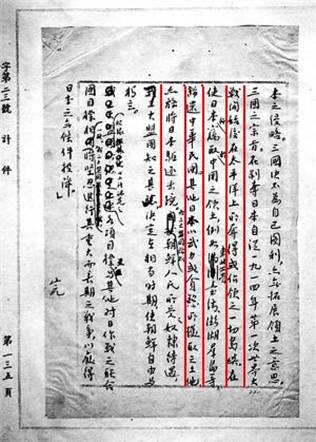 本之侵略。三國決不為自己圖利，亦無拓展領土之意思。
三國之宗旨，在剝奪日本自從一九一四年第一次世界大
戰開始後在太平洋上所奪得或佔領之一切島嶼，在
使日本竊取中國之領土，例如，澎湖羣島等
歸還中華民國，其他日本以武力或貪慾所攫取之土地
亦務將日本驅逐出境，朝鮮人民所受奴隸待遇，
三大盟國知之甚，決定在相當時期使朝鮮自由與
獨立。
各項目標與其他對日作戰之聯合
國目標相一致，堅忍進行其重大而長期之戰爭，以獲得
日本之無條件投降。」
完
字第二三號 計 件 第一三五頁